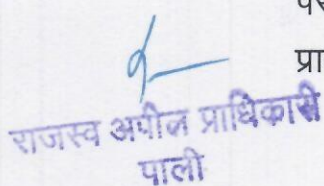 प्रा
राजस्व अपील प्राधिकारी
पाली